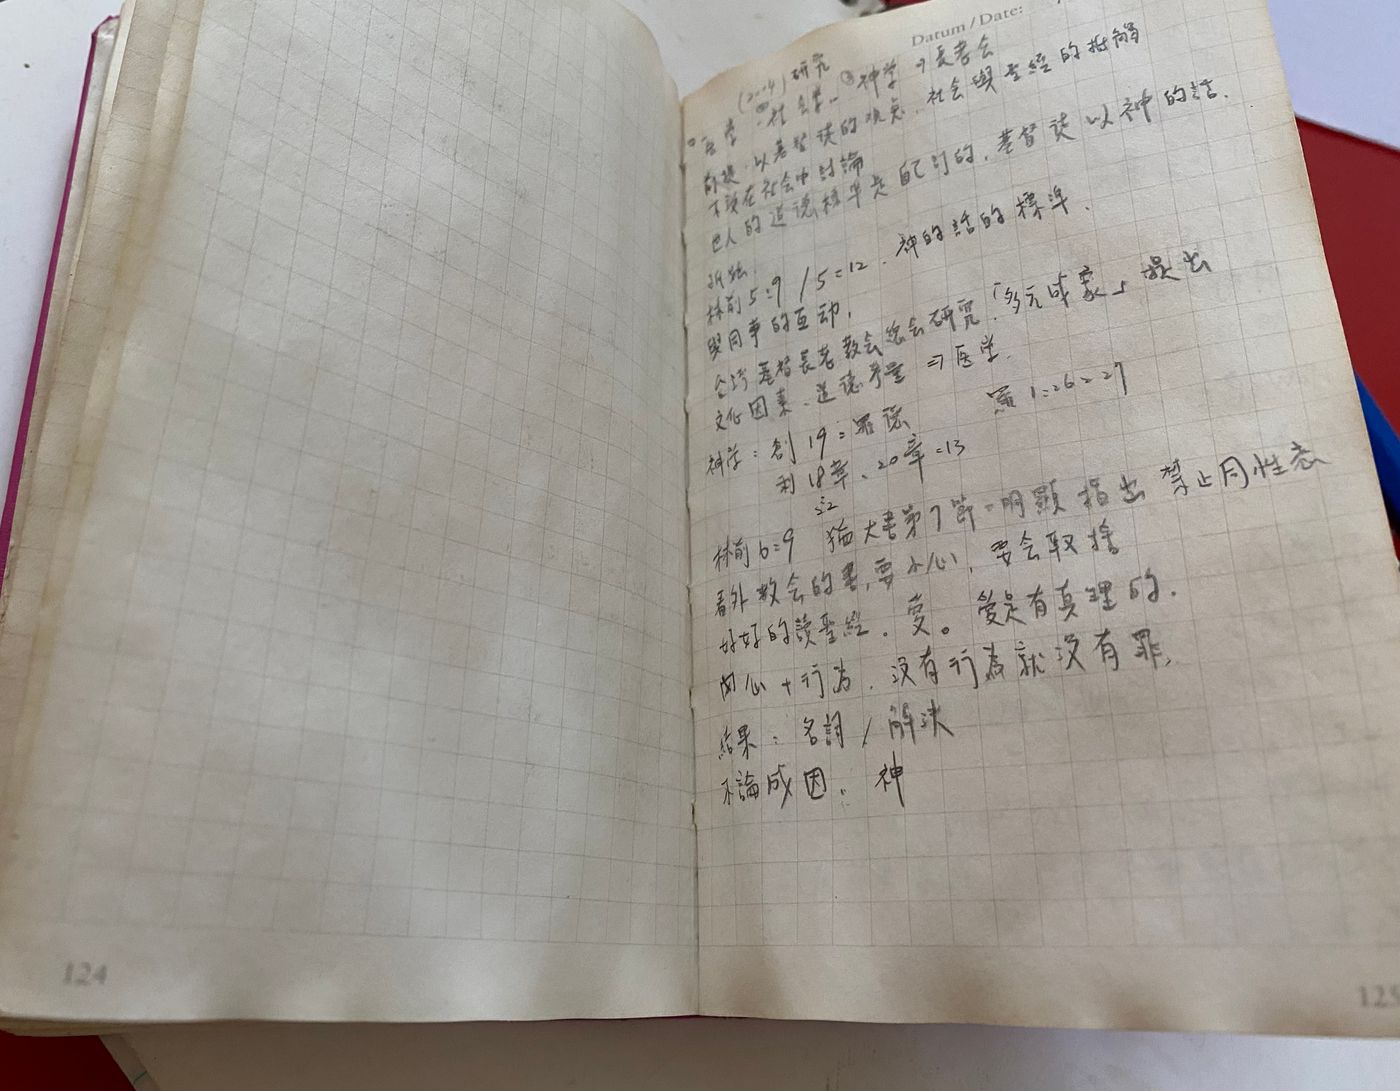 Datum / Date:
(2004) 研究
医学 ②社会学 ③神学 → 長老会
前提：以基督徒的观点，社会與聖經的拆解
不該在社会中討論
世人的道德標準是自己訂的，基督徒以神的話.
林前 5:9 / 5:12. 神的話的標準.
與同事的互动,
台湾基督長老教会总会研究「多元成家」提出
文化因素、道德考量 ⇒ 医学.
神学：創 19: 羅 1:26-27
利 18章:22、20章:13
林前 6:9 猶大書第7節：明顯指出禁止同性恋
看外教会的書，要小心，要会取捨
好好的讀聖經. 愛。愛是有真理的.
内心 + 行為，没有行為就没有罪,
結果：名詞 / 解决
不論成因：神
124
125